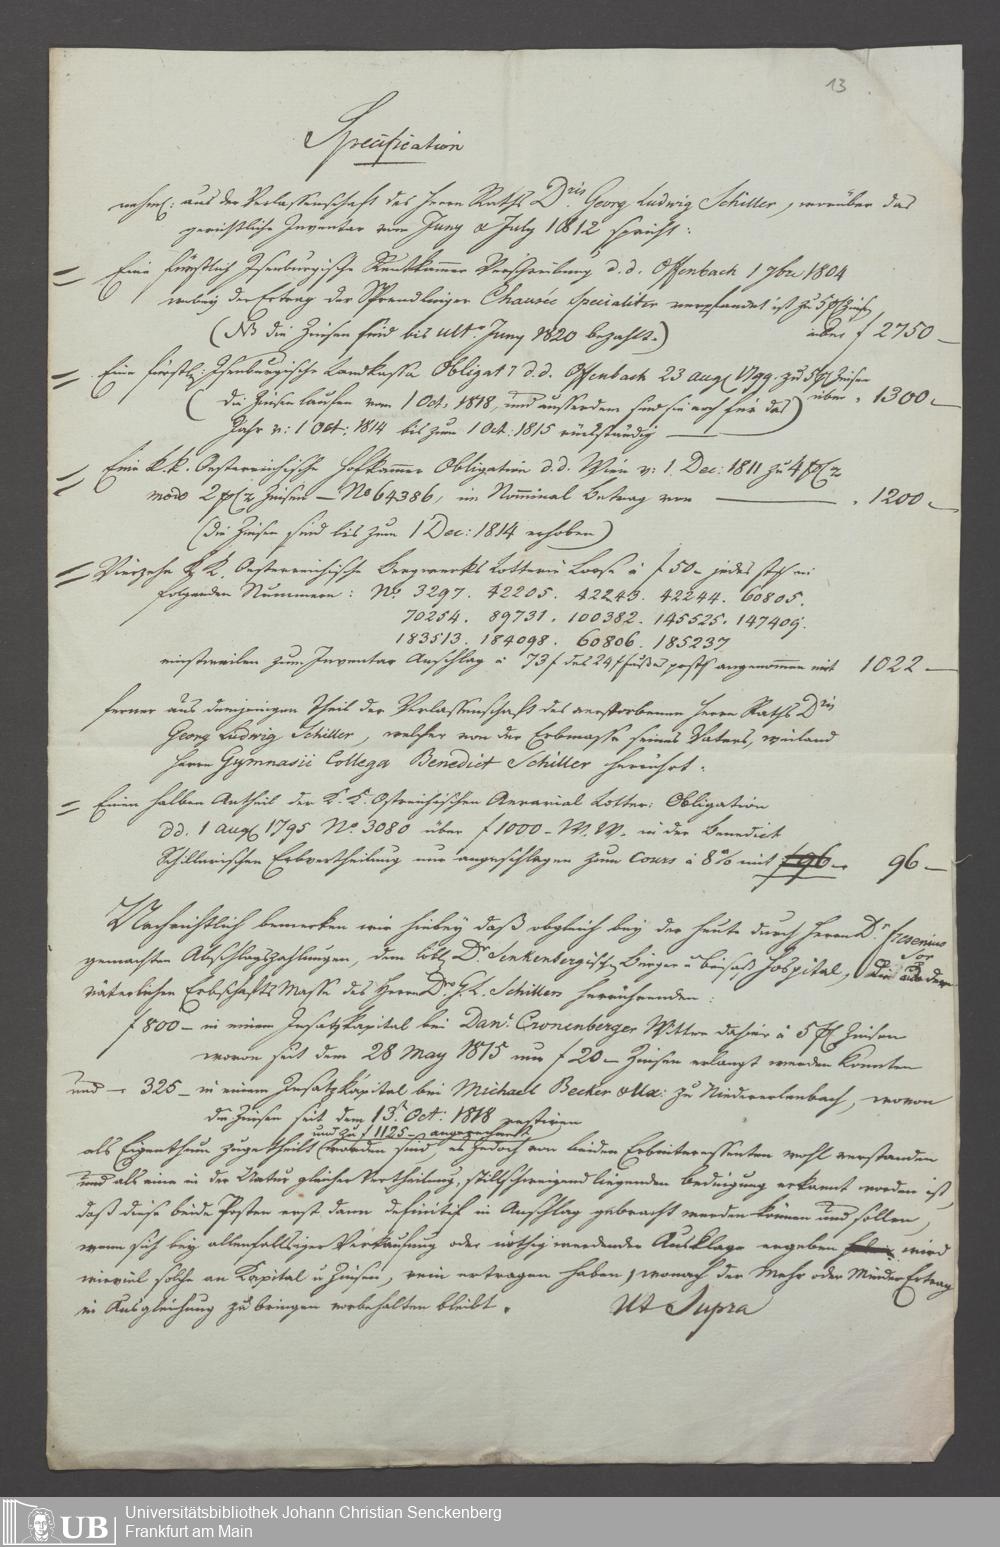 13
Specification
nehml: aus der Verlassenschaft des Herrn Raths Dris Georg Ludwig Schiller, worüber das
gerichtliche Inventar vom Juny & July 1812 spricht:
Eine fürstlich Isenburgische Rentkammer Verschreibung d. d. Offenbach 1 7bre 1804
wobey der Ertrag der Sprendlinger Chausée specialiter verpfändet ist zu 5 pC Zinsen
(NB die Zinsen sind bis ulto Juny 1820 bezahlt.) über f 2750 –
Eine fürstl: Isenburgische Landkassa Obligat: d. d. Offenbach 23 aug 1799. zu 5 pC Zinsen
(die Zinsen laufen vom 1 Oct. 1818, und ausserdem sind sie noch für das) über " 1300 –
Jahr v: 1 Oct: 1814 bis zum 1 Oct: 1815 rückständig
Eine k. k. Oesterreichische Hofkammer Obligation d. d. Wien v: 1. Dec: 1811 zu 4 pC
modo 2 pC Zinsen – No 64386, im Nominal Betrag von " 1200 –
(die Zinsen sind bis zum 1 Dec: 1814 erhoben)
Vierzehn K. K. Oesterreichische Bergwerks Lotterie Loose à f 50 – jedes sub
folgenden Nummern: No. 3297. 42205. 42243. 42244. 60805.
70254. 89731. 100382. 145525. 147409.
183513. 184098. 60806. 185237
einstweilen zum Inventar Anschlag à 73 f des 24 f fußes angenommen mit 1022 –
ferner aus demjenigen Theil der Verlassenschaft des verstorbenen Herrn Raths Dris
Georg Ludwig Schiller, welcher von der Erbmasse seines Vaters, weiland
Herrn Gymnasii Collega Benedict Schiller herrührt:
Einen halben Antheil der K. K. Ostreichischen Aerarial Lotter: Obligation
dd. 1 aug 1795 No. 3080 über f 1000 – W. W. in der Benedict
Schillerischen Erbvertheilung nur angeschlagen zum Cours à 8 % mit f 96 – 96 –
Nachrichtlich bemerken wir hiebey daß obgleich bey der heute durch Herrn Dr. Jassoy
gemachten Abschlagszahlungen, dem löbl Dr Senkenbergischen Bürger u Beisaß Hospital, die aus der
väterlichen Erbschafts Masse des Herrn Dr. G. L. Schillers herrührenden:
f 800 – in einem Insatzkapital bei Danl. Cronenberger Wittwe dahier à 5 pC Zinsen
wovon seit dem 28 May 1815 nur f 20 – Zinsen erlangt werden konnten
und – 325 – in einem Insatzkapital bei Michael Becker & Ux: zu Niedererlenbach, wovon
die Zinsen seit dem 13. Oct: 1818 restiren
und zu f 1125 – angerechnet
als Eigenthum zugetheilt worden sind, es jedoch von beiden Erbinteressenten wohl verstanden
und als eine in der Natur gleicher Vertheilung, stillschweigend liegenden bedingung erkannt worden ist,
daß diese beide Posten erst dann definitif in Anschlag gebracht werden können und sollen,
wenn sich bey allenfallsiger Verkaufung oder nöthig werdender Ausklage ergeben wird
wieviel solche an Kapital u Zinsen, rein ertragen haben, wonach der Mehr oder Minder Ertrag
in Ausgleichung zu bringen vorbehalten bleibt.
Ut Supra
UB
Universitätsbibliothek Johann Christian Senckenberg
Frankfurt am Main